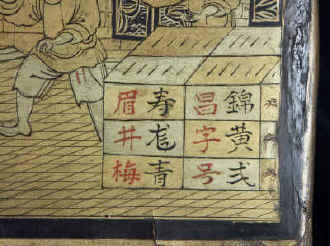 錦昌
黄字
弍号
寿眉
尨井
青梅